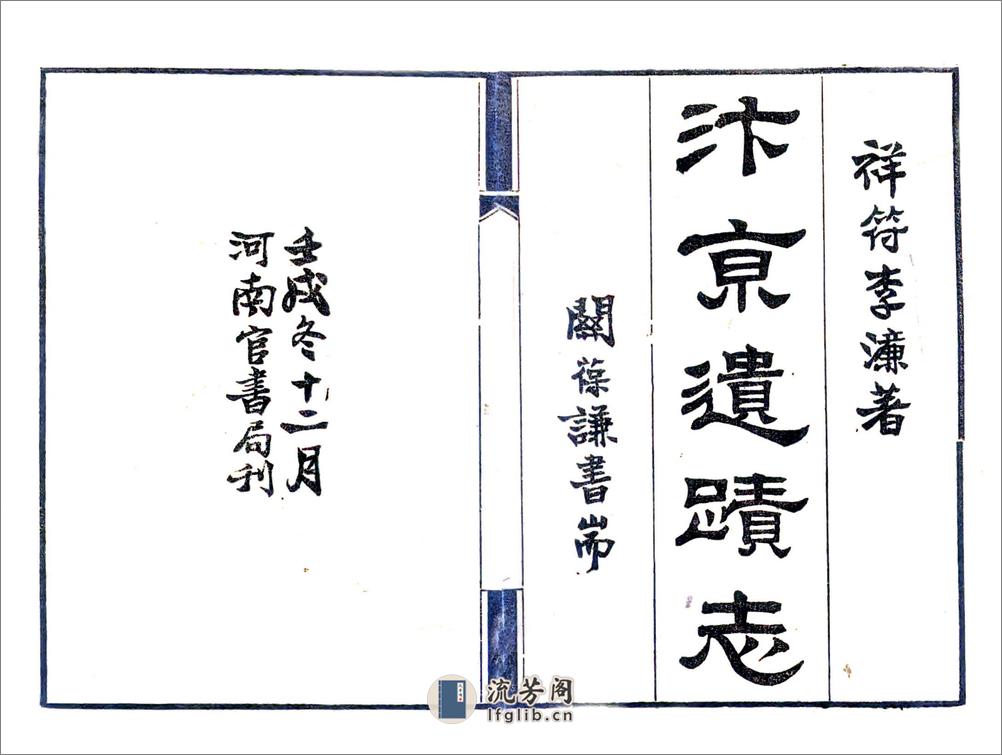 祥符李濂著
汴京遺蹟志
關葆謙書耑
壬戌冬十二月
河南官書局刊
流芳阁
lfglib.cn